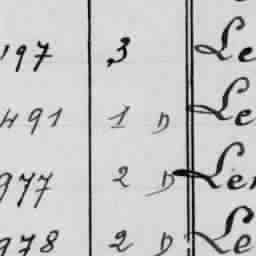 197 3 Le
491 1 D Le
977 2 D Ler
978 2 D Le